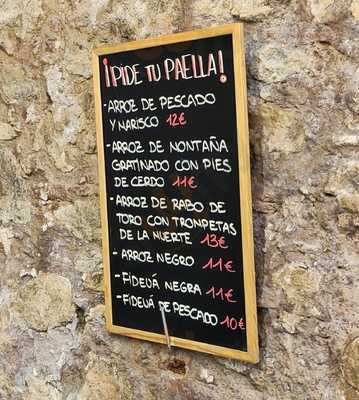 ¡PIDE TU PAELLA!
-ARROZ DE PESCADO
Y MARISCO 12€
-ARROZ DE MONTAÑA
GRATINADO CON PIES
DE CERDO 11€
-ARROZ DE RABO DE
TORO CON TROMPETAS
DE LA MUERTE 13€
-ARROZ NEGRO 11€
-FIDEUÁ NEGRA 11€
-FIDEUÁ DE PESCADO 10€